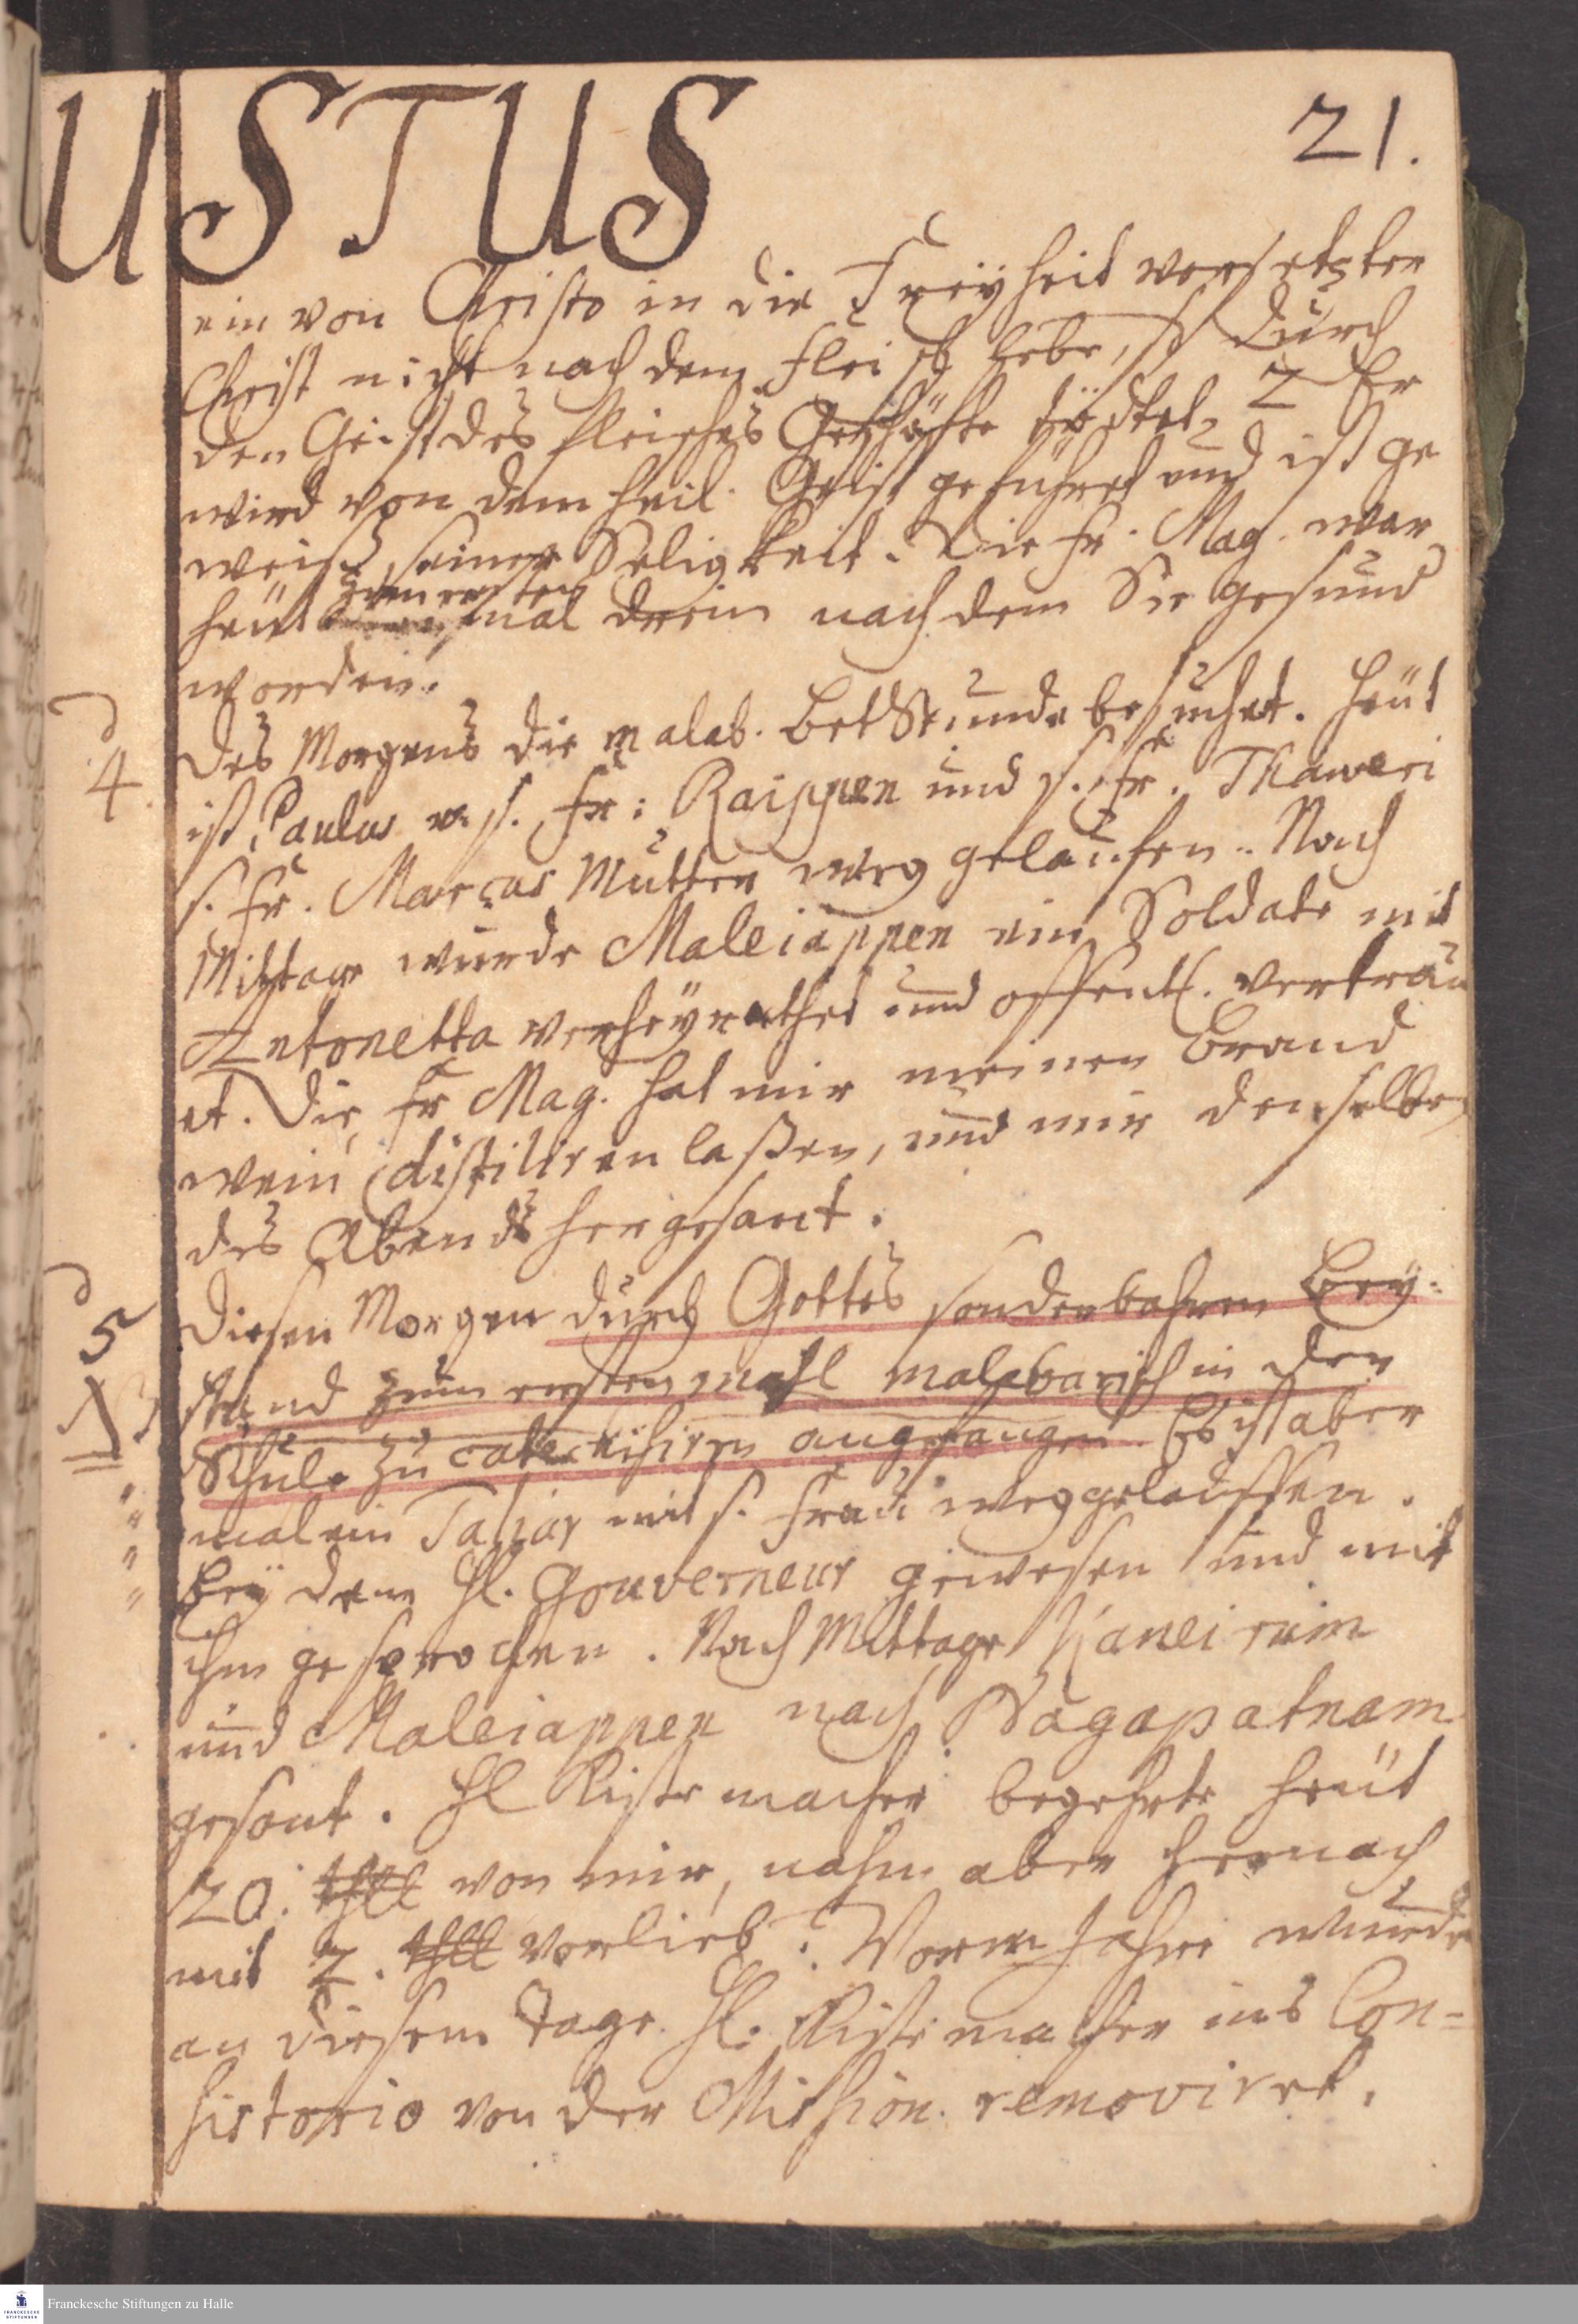 USTUS
21.
ein von Christo in die Freyheit versetzter
Christ nicht nach dem Fleisch lebe, durch
den Geist des Fleisches Geschäfte tödtet, 2 Er
wird von dem heil. Geist geführet und ist ge
wiß seiner Seligkeit. Die Fr. Mag. war
heut zum ersten mal drein nach dem Sie gesund
worden.
4.
Des Morgens die malab. BetStunde besuchet. Heut
ist Paulus s. Fr: Raippen und s. Fr. Thaweri
s. Fr. Marcus Mutter weg gelaufen. Nach
Mittage wurde Maleiappen ein Soldate mit
Antonetta verheyrathet und offentl. vertrau
et. Die Fr Mag. hat mir meinen Brand
wein distiliren laßen, und mir denselben
des Abends her gesant.
5
Diesen Morgen durch Gottes sonderbahren Bey-
stand zum ersten mahl malabarisch in der
Schule zu catechisiren angefangen. Es ist aber
mal ein mit s. Frau weggelauffen.
Bey dem Hl. Gouverneur gewesen und mit
ihm gesprochen. Nach Mittage
und Maleiappen nach Nagapatnam
gesant. Hl Kistemacher begehrte heut
20. thll von mir, nahm aber hernach
mit 2. thll vorlieb. Vorm Jahre wurde
an diesem Tage Hl. Kistemacher ins Con=
sistorio von der Mission removiret.
Franckesche Stiftungen zu Halle